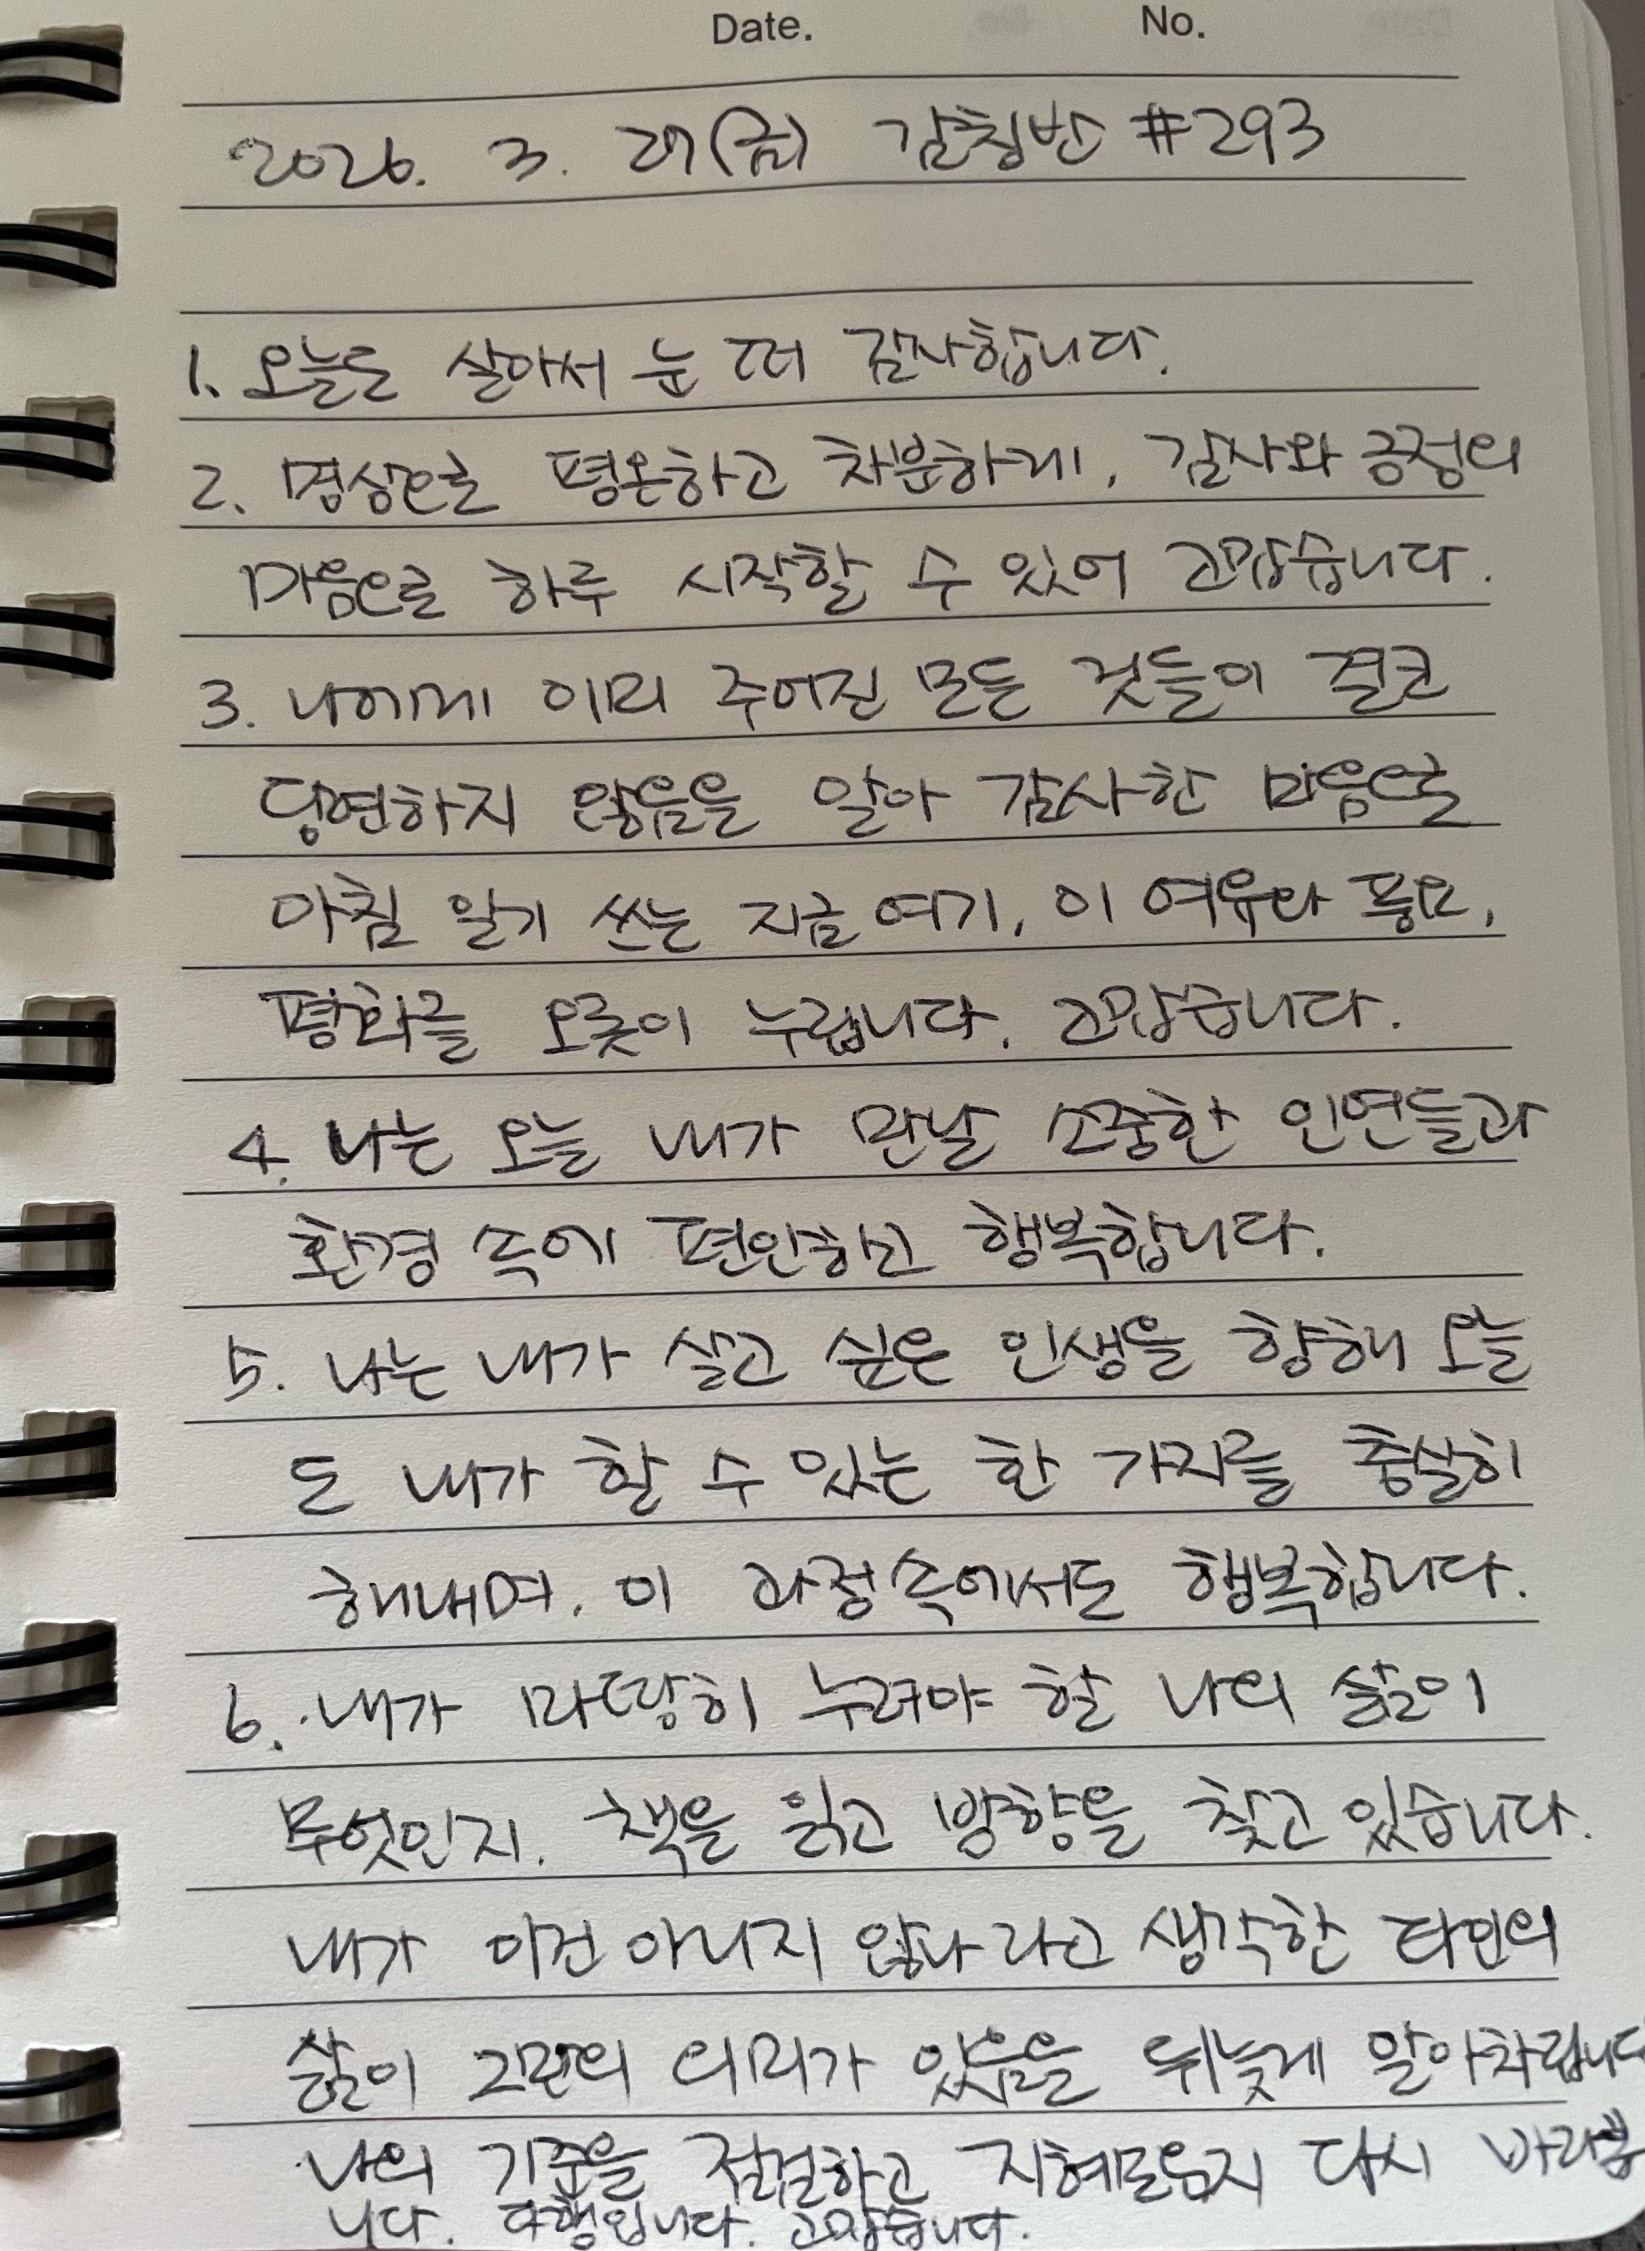 Date. No.
2026. 3. 27(금) 감칭반 #293
1. 오늘도 살아서 눈 떠 감사합니다.
2. 명상으로 평온하고 차분하게, 감사와 긍정의
마음으로 하루 시작할 수 있어 고맙습니다.
3. 나에게 이미 주어진 모든 것들이 결코
당연하지 않음을 알아 감사한 마음으로
아침 일기 쓰는 지금 여기, 이 여유와 풍요,
평화를 오롯이 누립니다. 고맙습니다.
4. 나는 오늘 내가 만날 소중한 인연들과
환경 속에 편안하고 행복합니다.
5. 나는 내가 살고 싶은 인생을 향해 오늘
도 내가 할 수 있는 한 가지를 충실히
해내며, 이 과정속에서도 행복합니다.
6. 내가 마땅히 누려야 할 나의 삶이
무엇인지. 책을 읽고 방향을 찾고 있습니다.
내가 이건 아니지 않나 라고 생각한 타인의
삶이 그만의 의미가 있음을 뒤늦게 알아차립니다
나의 기준을 점검하고 지혜로운지 다시 바라봅
니다. 다행입니다. 고맙습니다.